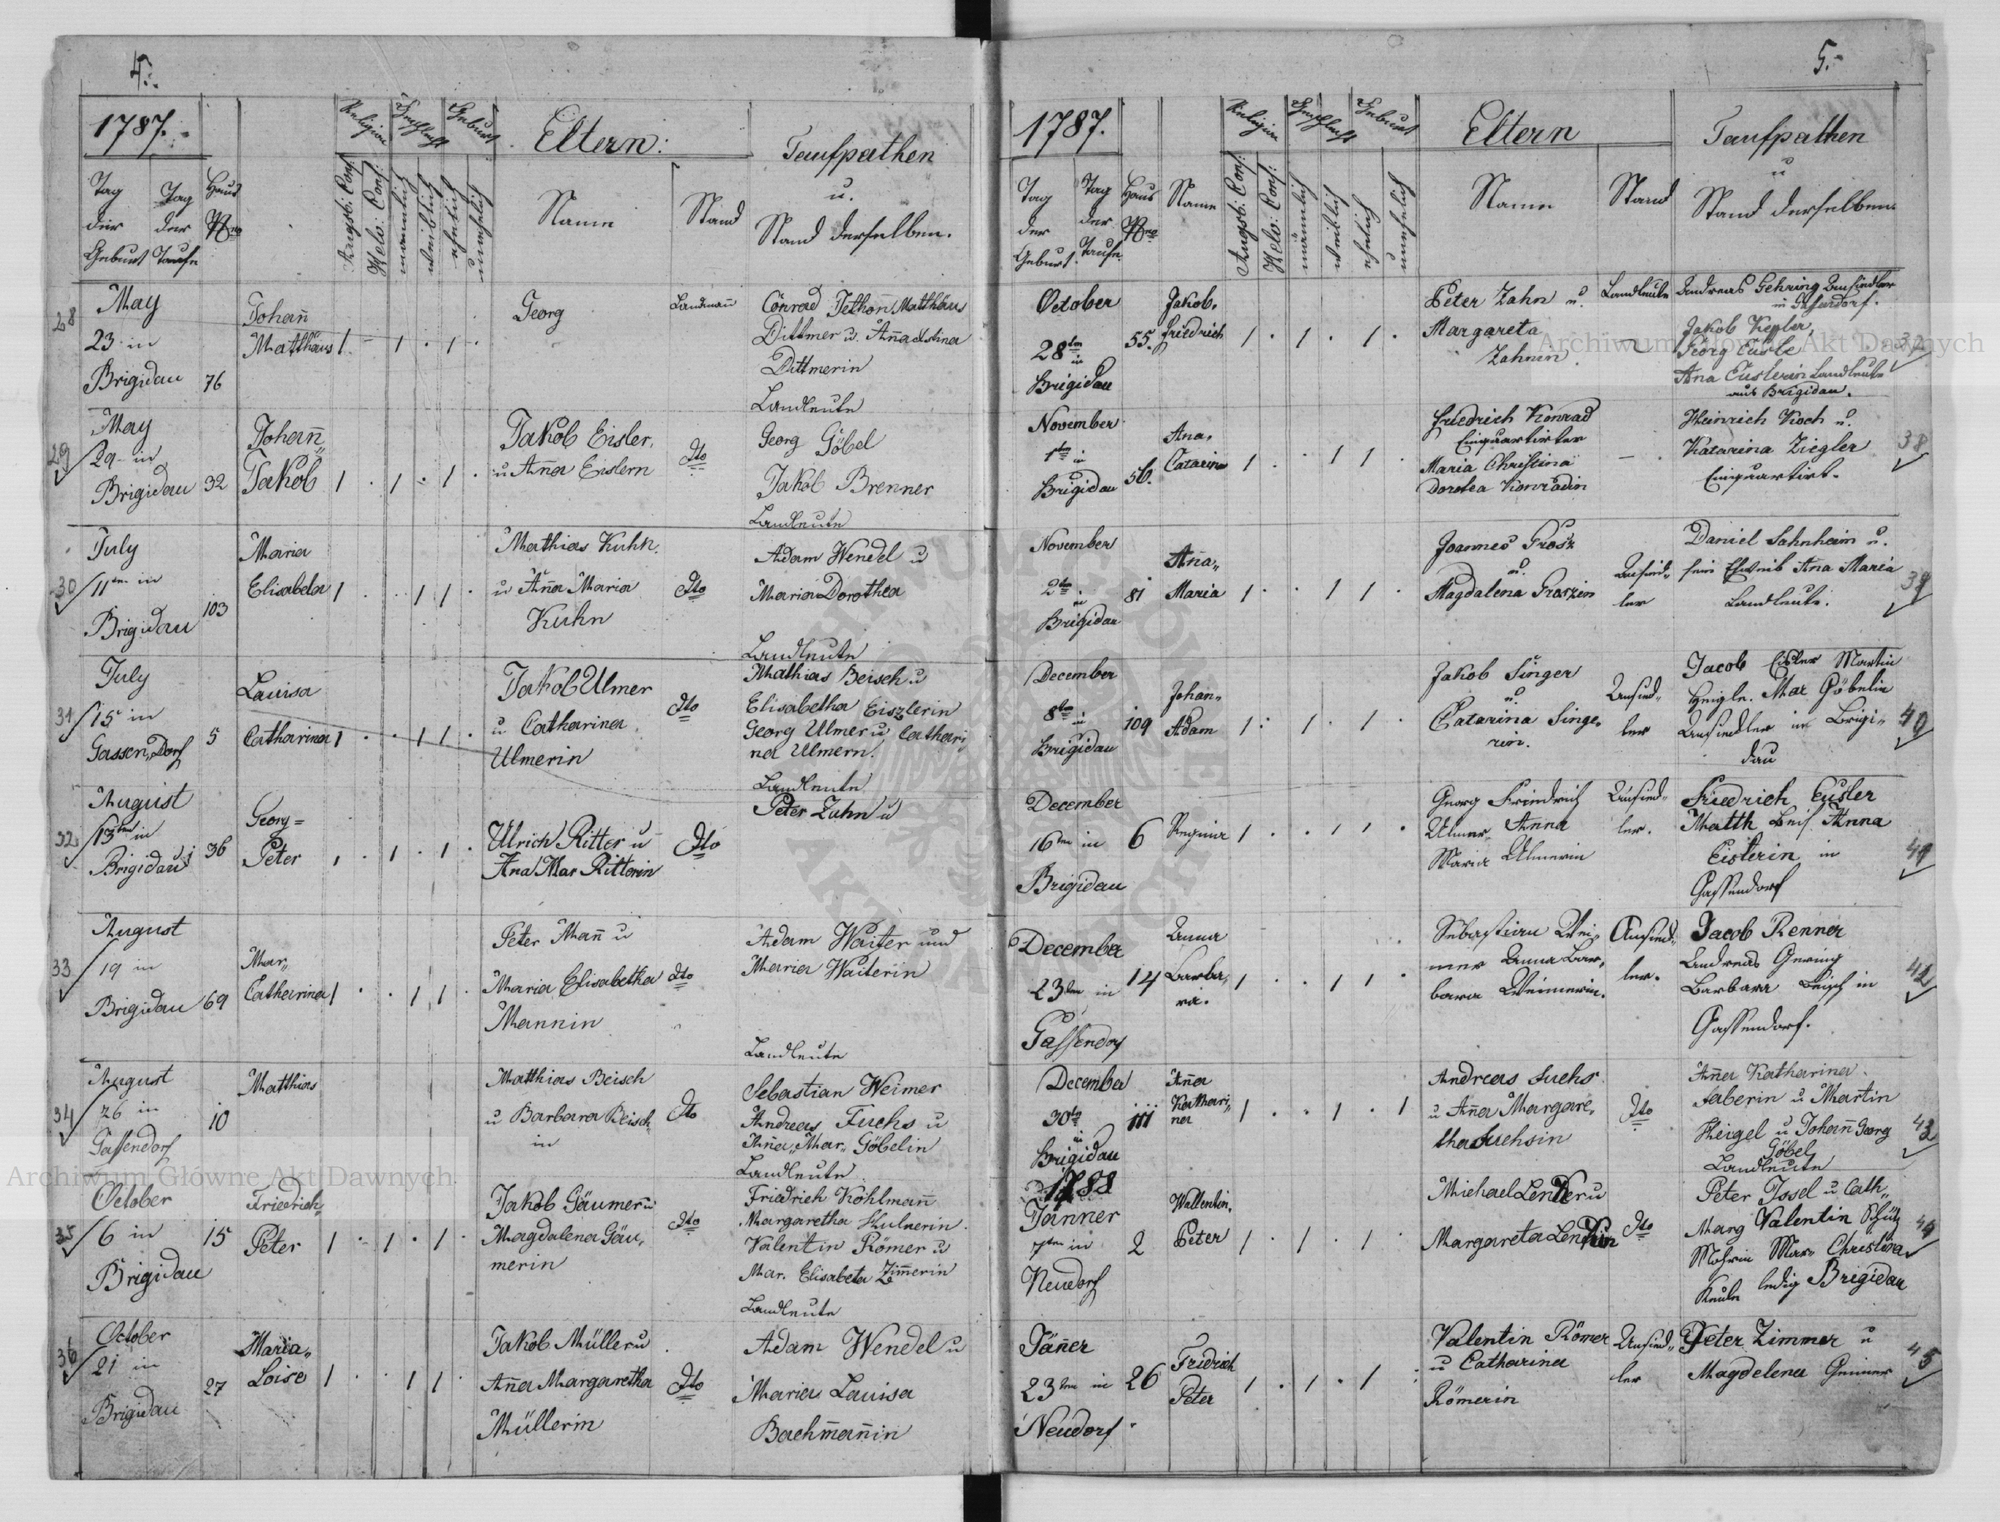 4.
1787.
Religion
Geschlecht
Geburt
Eltern:
Taufpathen
u.
Stand derselben.
Tag
der
Geburt
Tag
der
Taufe
Haus
Nro
Augsb: Conf:
Helv: Conf:
männlich
weiblich
ehelich
unehelich
Name
Stand
28
May
23 in
Brigidau
76
Johann
Matthäus
1 1 1
Georg
Landmann
Conrad Matthäus
Dittmer u. Anna
Dittmerin
Landleute
29
May
29 in
Brigidau
32
Johann
Jakob
1 1 1
Jakob Eisler
u Anna Eislern
dto
Georg Göbel
Jakob Brenner
Landleute
30
July
11ten in
Brigidau
103
Maria
Elisabeta
1 1 1
Mathias Kuhn
u Anna Maria
Kuhn
dto
Adam Wendel u
Maria Dorothea
Landleute
31
July
15 in
Gassen Dorf
5
Lauisa
Catharina
1 1 1
Jakob Ulmer
u Catharina
Ulmerin
dto
Mathias Beisch u
Elisabetha Eiszlerin
Georg Ulmer u Cathari
na Ulmern.
Landleute
32
August
13ten in
Brigidau
36
Georg
Peter
1 1 1
Ulrich Ritter u
Ana Mar Ritterin
dto
Peter Zahn u
33
August
19 in
Brigidau
69
Mar
Catharina
1 1 1
Peter Mann u
Maria Elisabetha
Mannin
dto
Adam Waiter und
Maria Waiterin
Landleute
34
August
26 in
Gassendorf
10
Matthias
Matthias Beisch
u Barbara Beisch
in
dto
Sebastian Weimer
Andreas Fuchs u
Anna Mar. Göbelin
Landleute
35
October
6 in
Brigidau
15
Friedrich
Peter
1 1 1
Jakob Gäumer u
Magdalena Gäu
merin
dto
Friedrich Kohlmann
Margaretha
Valentin Römer u
Mar. Elisabeta Zimmerin
Landleute
36
October
21 in
Brigidau
27
Maria
Loise
1 1 1
Jakob Müller u
Anna Margaretha
Müllerin
dto
Adam Wendel u
Maria Lauisa
Bachmannin
5.
1787.
Religion
Geschlecht
Geburt
Eltern
Taufpathen
u
Stand derselben.
Tag
der
Geburt
Tag
der
Taufe
Haus
Nro
Name
Augsb: Conf:
Helv: Conf:
männlich
weiblich
ehelich
unehelich
Name
Stand
October
28ten
in
Brigidau
55.
Jakob
Friedrich
1 1 1
Peter Zahn u.
Margareta
Zahnin
Landleute
Andreas Gehring Ansiedler
Jakob Kepler,
Ana Landleute
aus Brigidau.
37
November
1ten in
Brigidau
56.
Ana
Catarina
1 1 1
Friedrich Konrad
Einquartirter
Maria Christina
Dorotea Konradin
Heinrich Koch u.
Katarina Ziegler
Einquartirt.
38
November
2ten in
Brigidau
81
Anna
Maria
1 1 1
Joannes Grosz
u.
Magdalena Groszin
Ansied
ler
Daniel Sahnheim u.
sein Eheweib Ana Maria
Landleute.
39
December
8ten in
Brigidau
109
Johan
Adam
1 1 1
Jakob Singer
u.
Catarina Singe
rin.
Ansied
ler
Jacob Eisler Martin
Heigle. Mar Göbelin
Ansiedler in Brigi
dau
40
December
16ten in
Brigidau
6
Regina
1 1 1
Georg Friedrich
Ulmer Anna
Maria Ulmerin
Ansied
ler.
Friedrich Eisler
Matth Beis Anna
Eislerin in
Gassendorf
41
December
23ten in
Gassendorf
14
Anna
Barba
ra.
1 1 1
Sebastian Wei
mer Anna Bar
bara Weimerin.
Ansied
ler.
Jacob Renner
Andreas Gering
Barbara Beisch in
Gassendorf.
42
December
30ten
in
Brigidau
111
Anna
Kathari
na
1 1 1
Andreas Fuchs
u Anna Margare
tha Fuchsin
dto
Anna Katharina
Faberin u Martin
Heigel u Johann Georg
Göbel
Landleute
43
1788
Jänner
7ten in
Neudorf
2
Wallentin
Peter
1 1 1
Michael u
Margareta
dto
Peter Issel u Cath
Marg Valentin Schütz
Mohrin Mar Christina
ledig Brigidau
44
Jänner
23ten in
Neudorf
26
Fridrich
Peter
1 1 1
Valentin Römer
u Catharina
Römerin
Ansied
ler
Peter Zimmer u
Magdelena
45
Archiwum Główne Akt Dawnych
Archiwum Główne Akt Dawnych